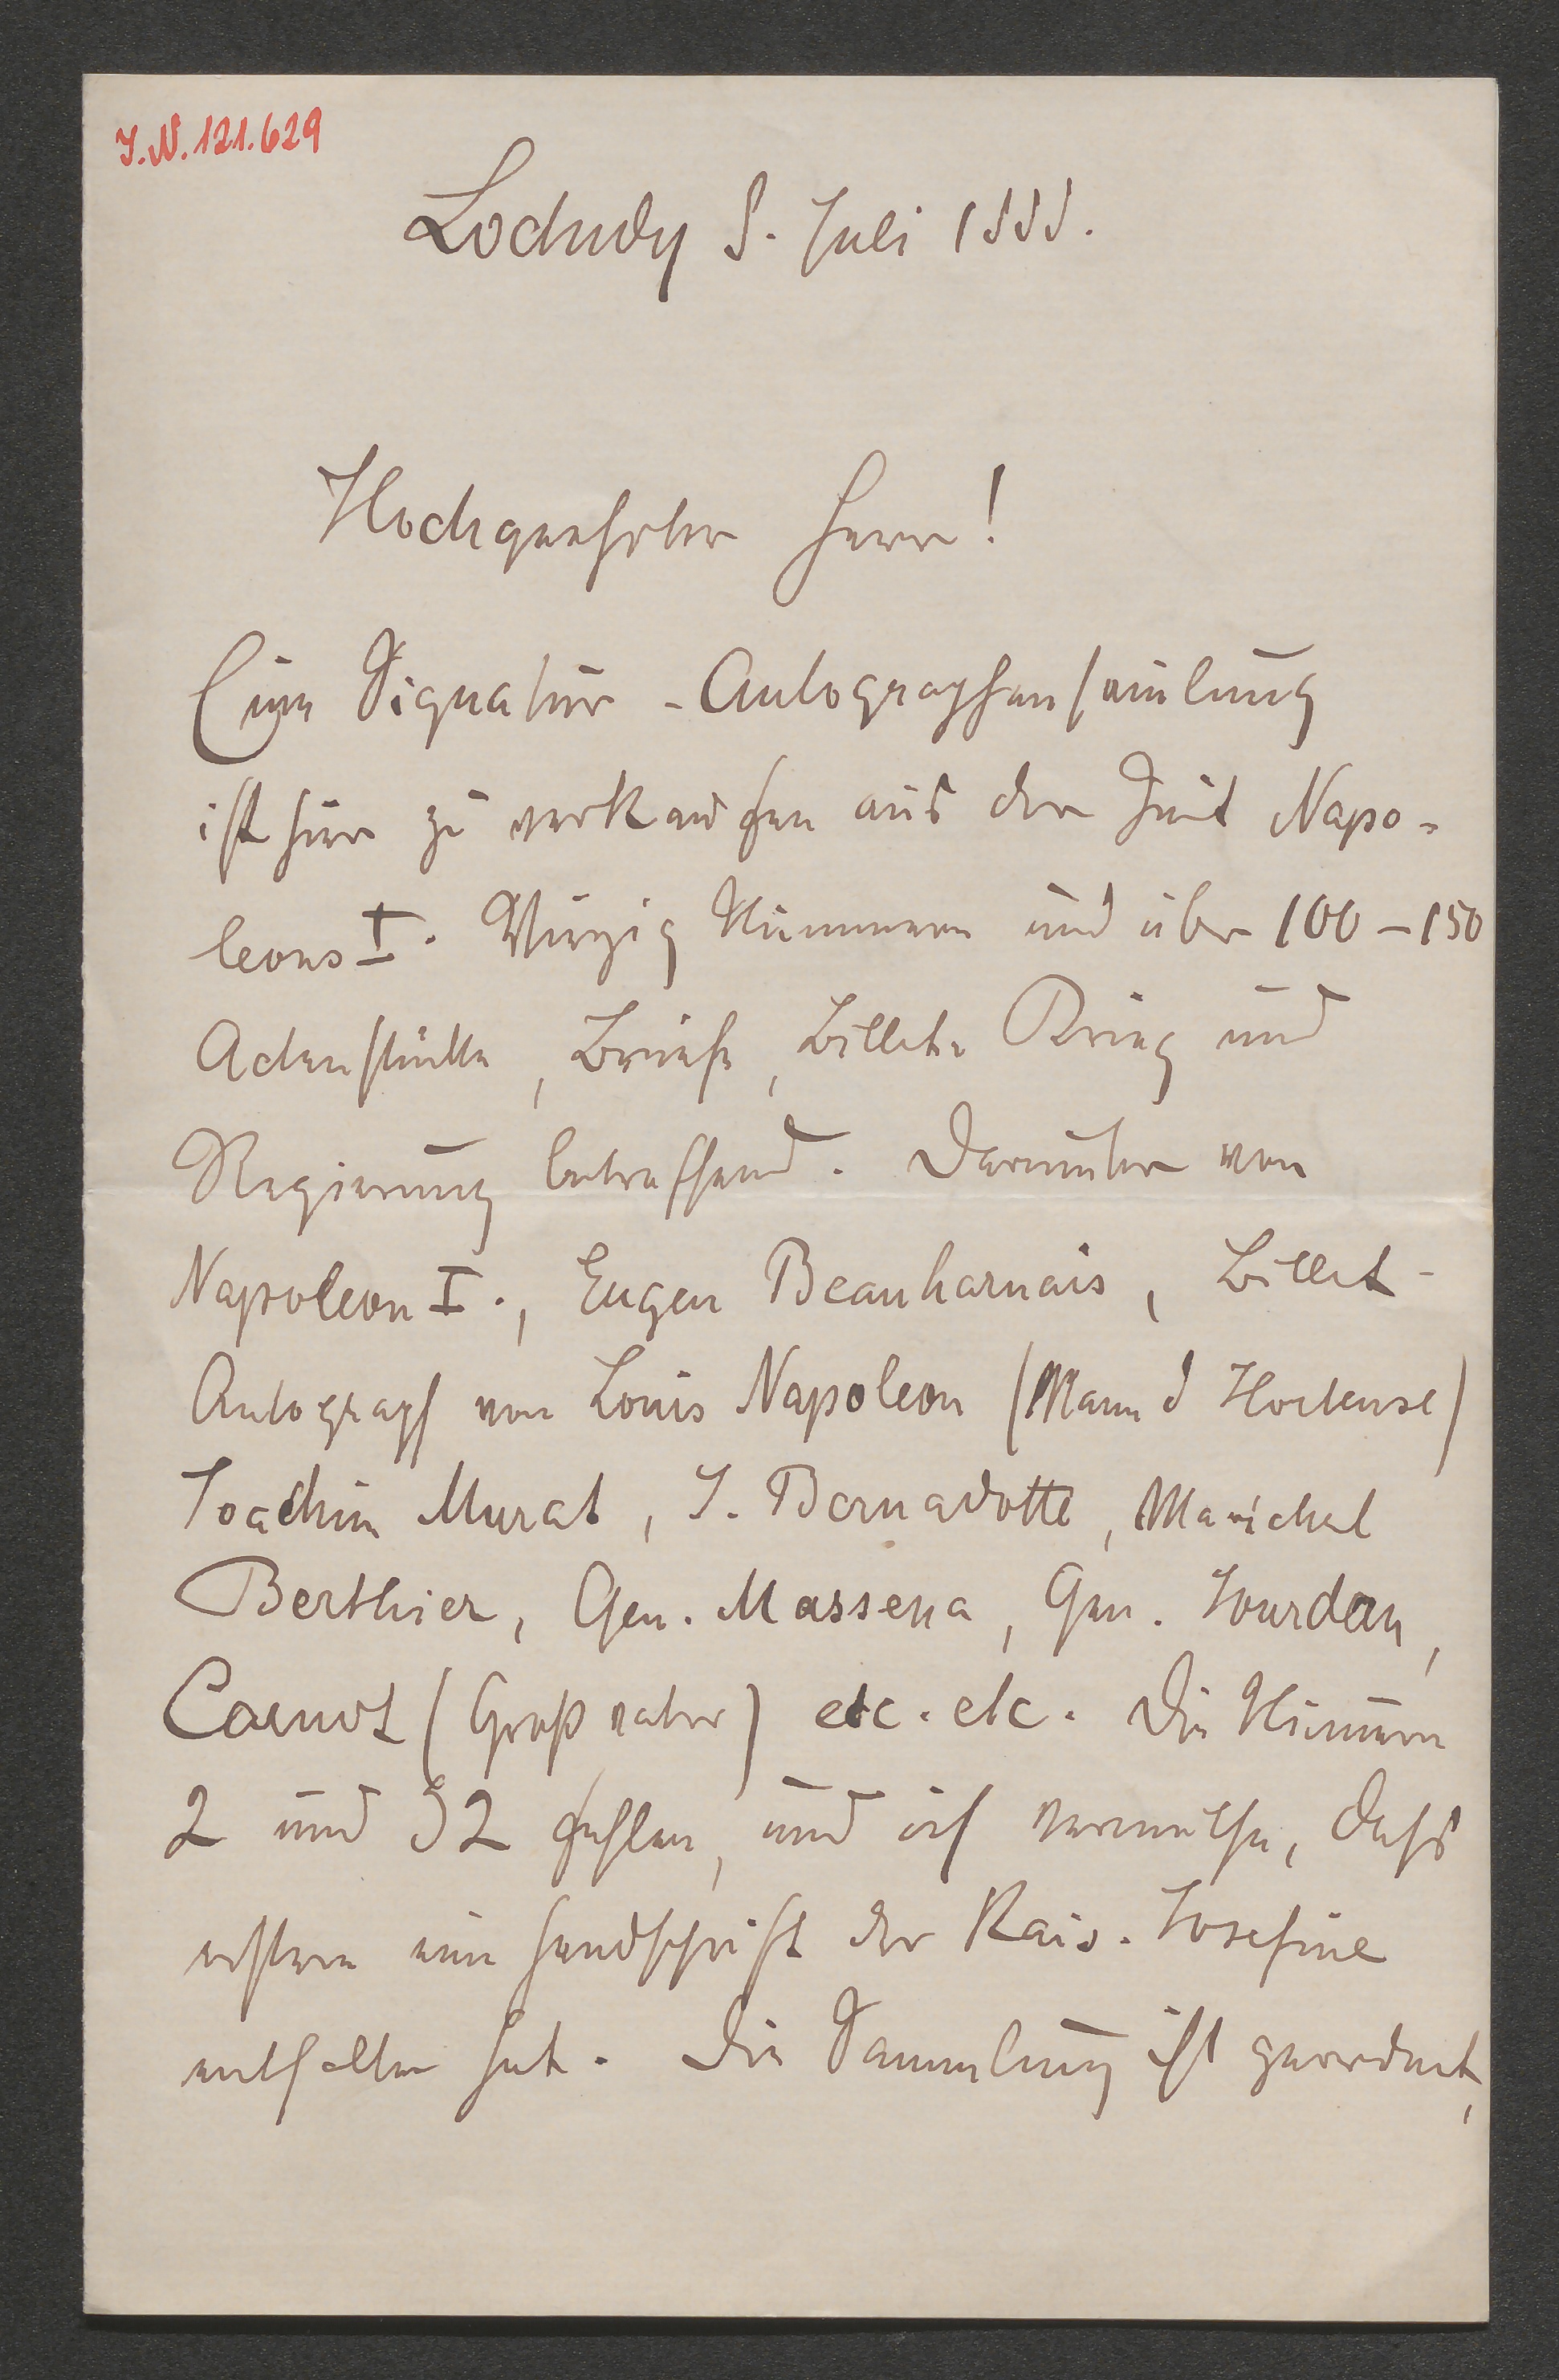 I.N. 121.629
Lochudy 8. Juli 1888.
Hochgeehrter Herr!
Eine Signatur-Autographensamlung
ist hier zu verkaufen aus der Zeit Napo-
leons I. Vierzig Nummern und über 100–150
Actenstücke, Briefe, Billete Krieg und
Regierung betreffend. Darunter von
Napoleon I., Eugen Beauharnais, Billet-
Autograph von Louis Napoleon (Mann d Hortense)
Joachim Murat, J. Bernadotte, Marichal
Berthier, Gen. Massena, Gen. Jourdan,
Carnot (Großvater) etc. etc. Die Numern
2 und 32 fehlen, und ich vermuthe, daß
erstere eine Handschrift der Kais. Josefine
enthalten hat. Die Sammlung ist geordnet,